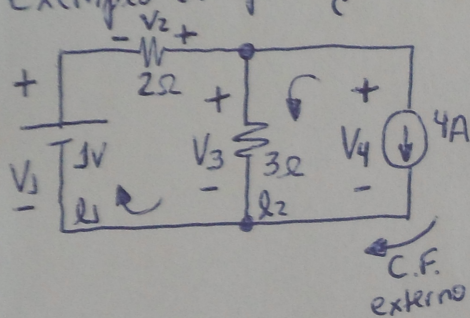 - V2 +
2Ω
+
1V
V1
-
l1
+
V3
3Ω
-
l2
+
V4
4A
-
C.F.
externo